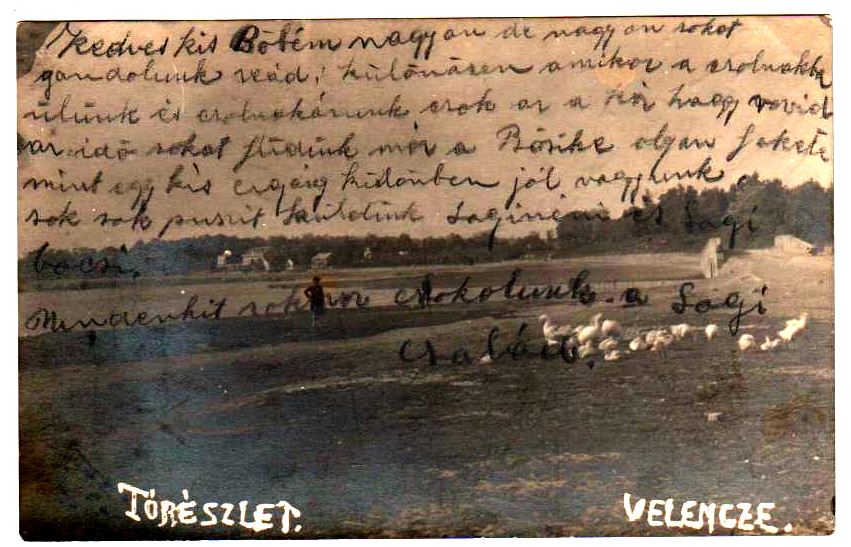 kedves kis Bötém nagyon de nagyon sokat
gondolunk reád, különösen amikor a csolnakba
ülünk és csolnakázunk csak az a kár hogy rövid
az idő sokat fürdünk már a Böske olyan fekete
mint egy kis cigány különben jól vagyunk
sok sok puszit küldünk Sagi néni és Sagi
bácsi.
Mindenkit sokszor csokolunk a Sagi
család.
TÓRÉSZLET. VELENCZE.